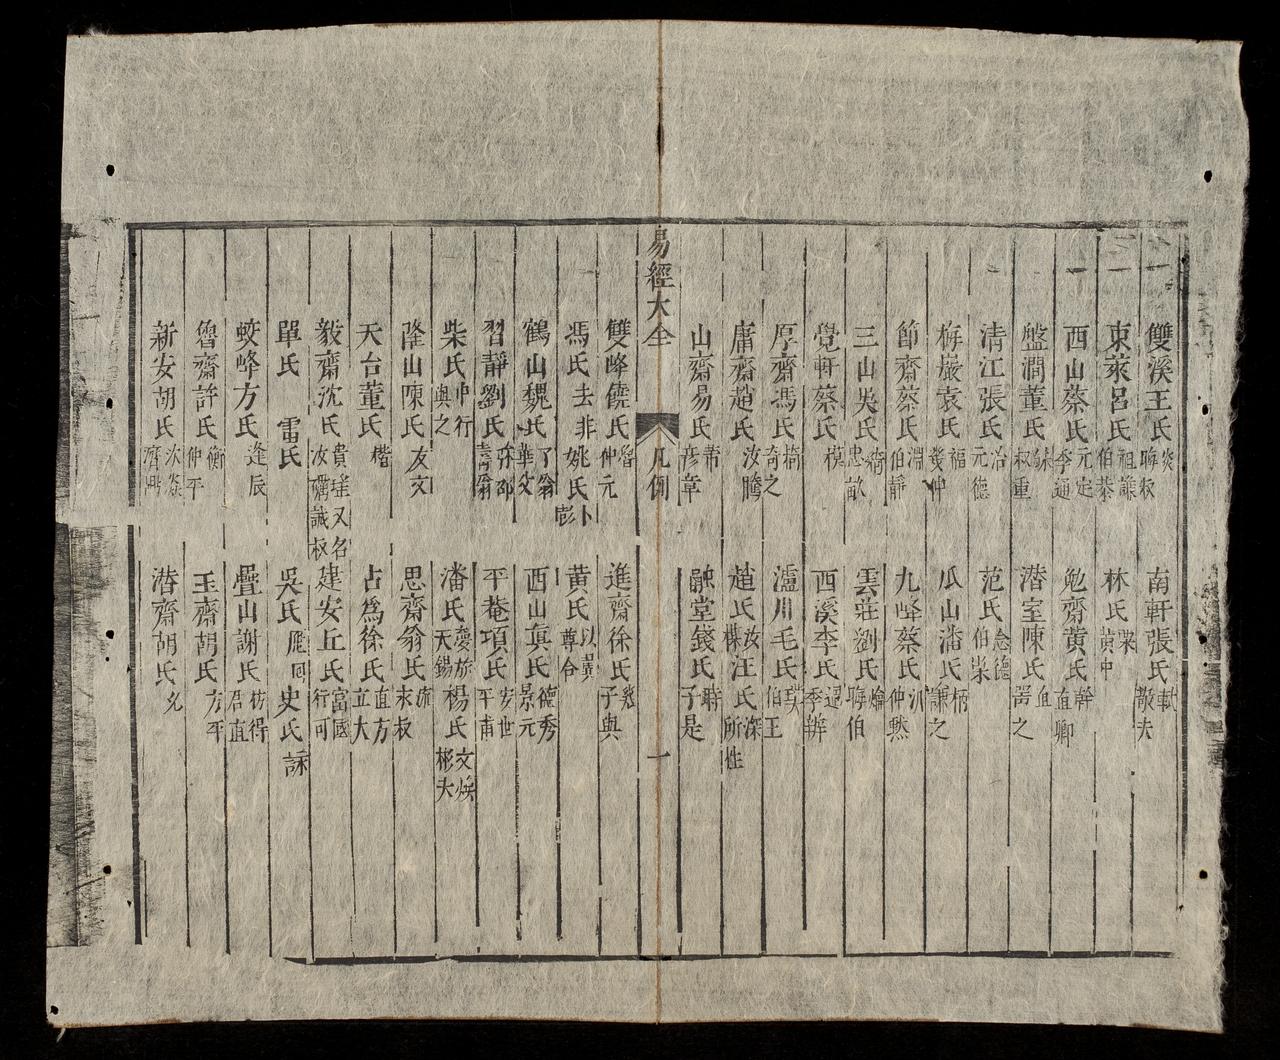 雙溪王氏炎晦叔 南軒張氏栻敬夫
東萊呂氏祖謙伯恭 林氏栗黃中
西山蔡氏元定季通 勉齋黃氏榦直卿
盤澗董氏銖叔重 潛室陳氏埴器之
清江張氏洽元德 范氏念德伯崇
梅巖袁氏福幾仲 瓜山潘氏柄謙之
節齋蔡氏淵伯靜 九峰蔡氏沉仲黙
三山吳氏綺忠 雲莊劉氏爚晦伯
覺軒蔡氏模 西溪李氏過季辨
厚齋馮氏椅奇之 瀘川毛氏璞伯玉
庸齋趙氏汝騰 趙氏汝楳 汪氏深所性
山齋易氏芾彦章 融堂錢氏時子是
易經大全 凡例 一
雙峰饒氏魯仲元 進齋徐氏幾子與
馮氏去非 姚氏卜彭 黃氏以翼尊合
鶴山魏氏了翁華父 西山真氏德秀景元
習靜劉氏弥邵壽翁 平菴項氏安世平甫
柴氏仲行與之 潘氏慶旅天錫 楊氏文煥彬夫
隆山陳氏友文 思齋翁氏旅求叔
天台董氏楷 占爲徐氏直方立大
毅齋沈氏貴瑤又名汝礪誠叔 建安丘氏富國行可
單氏 雷氏 吳氏 史氏詠
蛟峰方氏逢辰 疊山謝氏枋得君直
魯齋許氏衡仲平 玉齋胡氏方平
新安胡氏次焱濟鼎 潛齋胡氏允